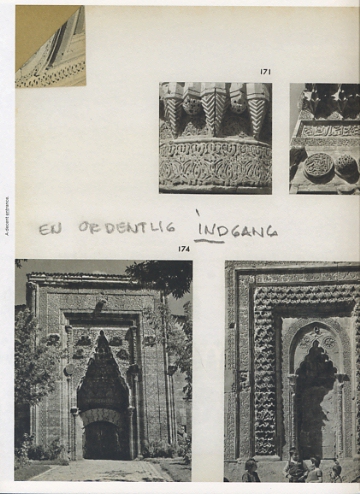 171
EN ORDENTLIG INDGANG
174
A decent entrance